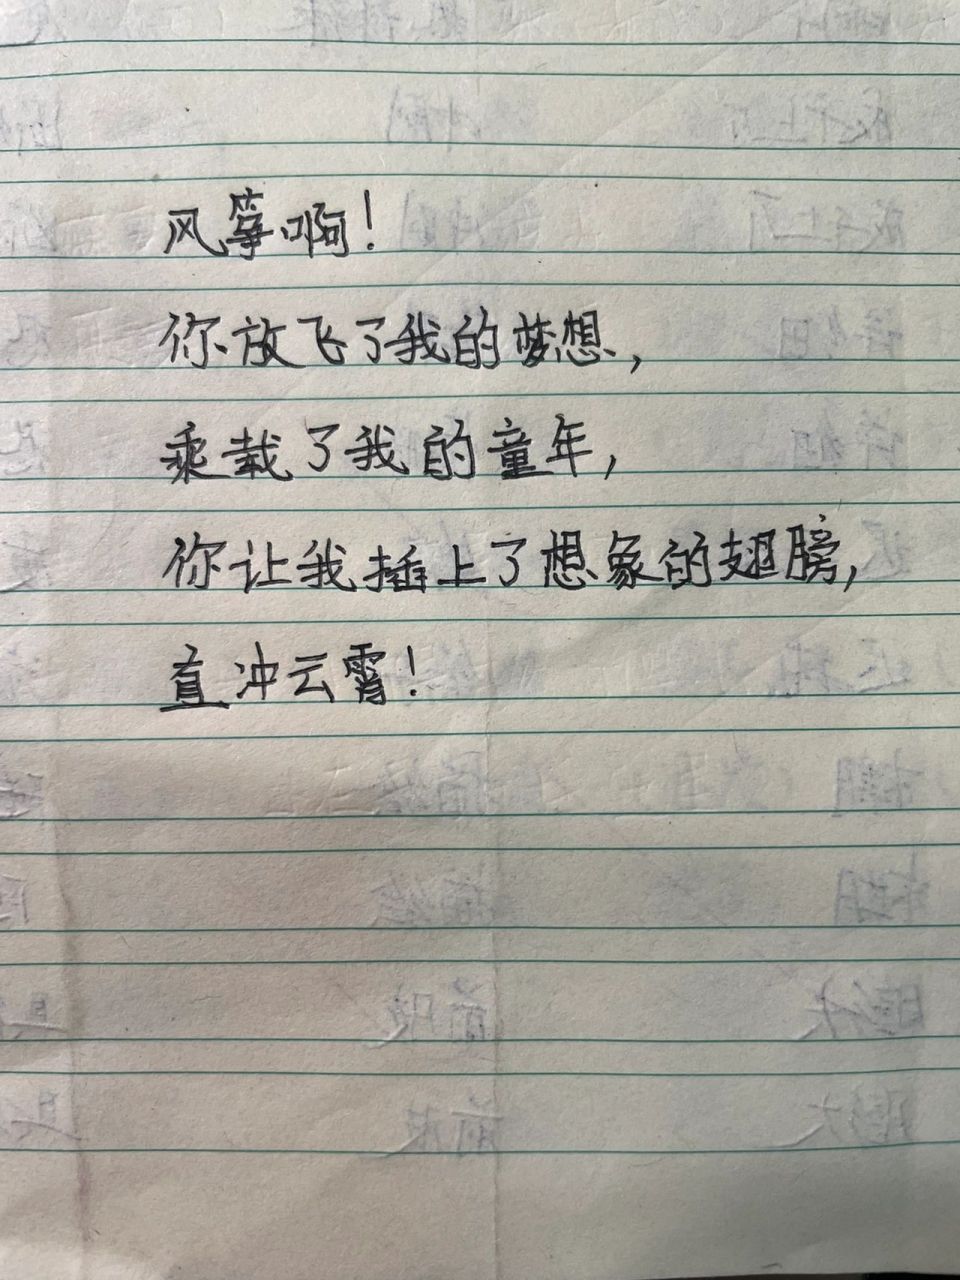 风筝啊！
你放飞了我的梦想，
乘载了我的童年，
你让我插上了想象的翅膀，
直冲云霄！